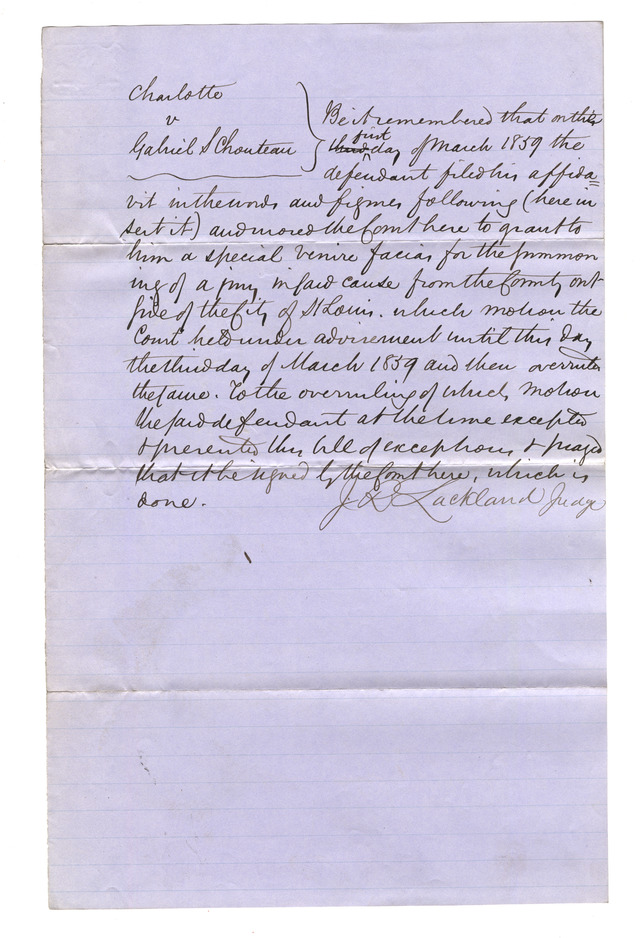 Charlotte
v
Gabriel S Chouteau
Be it remembered that on this
third first day of March 1859 the
defendant filed his affida=
vit in the words and figures following (here in
sert it) and moved the Court here to grant to
him a special venire facias for the summon
ing of a jury in said cause from the County out
side of the City of St Louis. which motion the
Court held under advisement until this day
the third day of March 1859 and then overrules
the same. To the overruling of which motion
the said defendant at the time excepted
& presented this bill of exceptions & prayed
that it be signed by the Court here, which is
done.
J R Lackland Judge